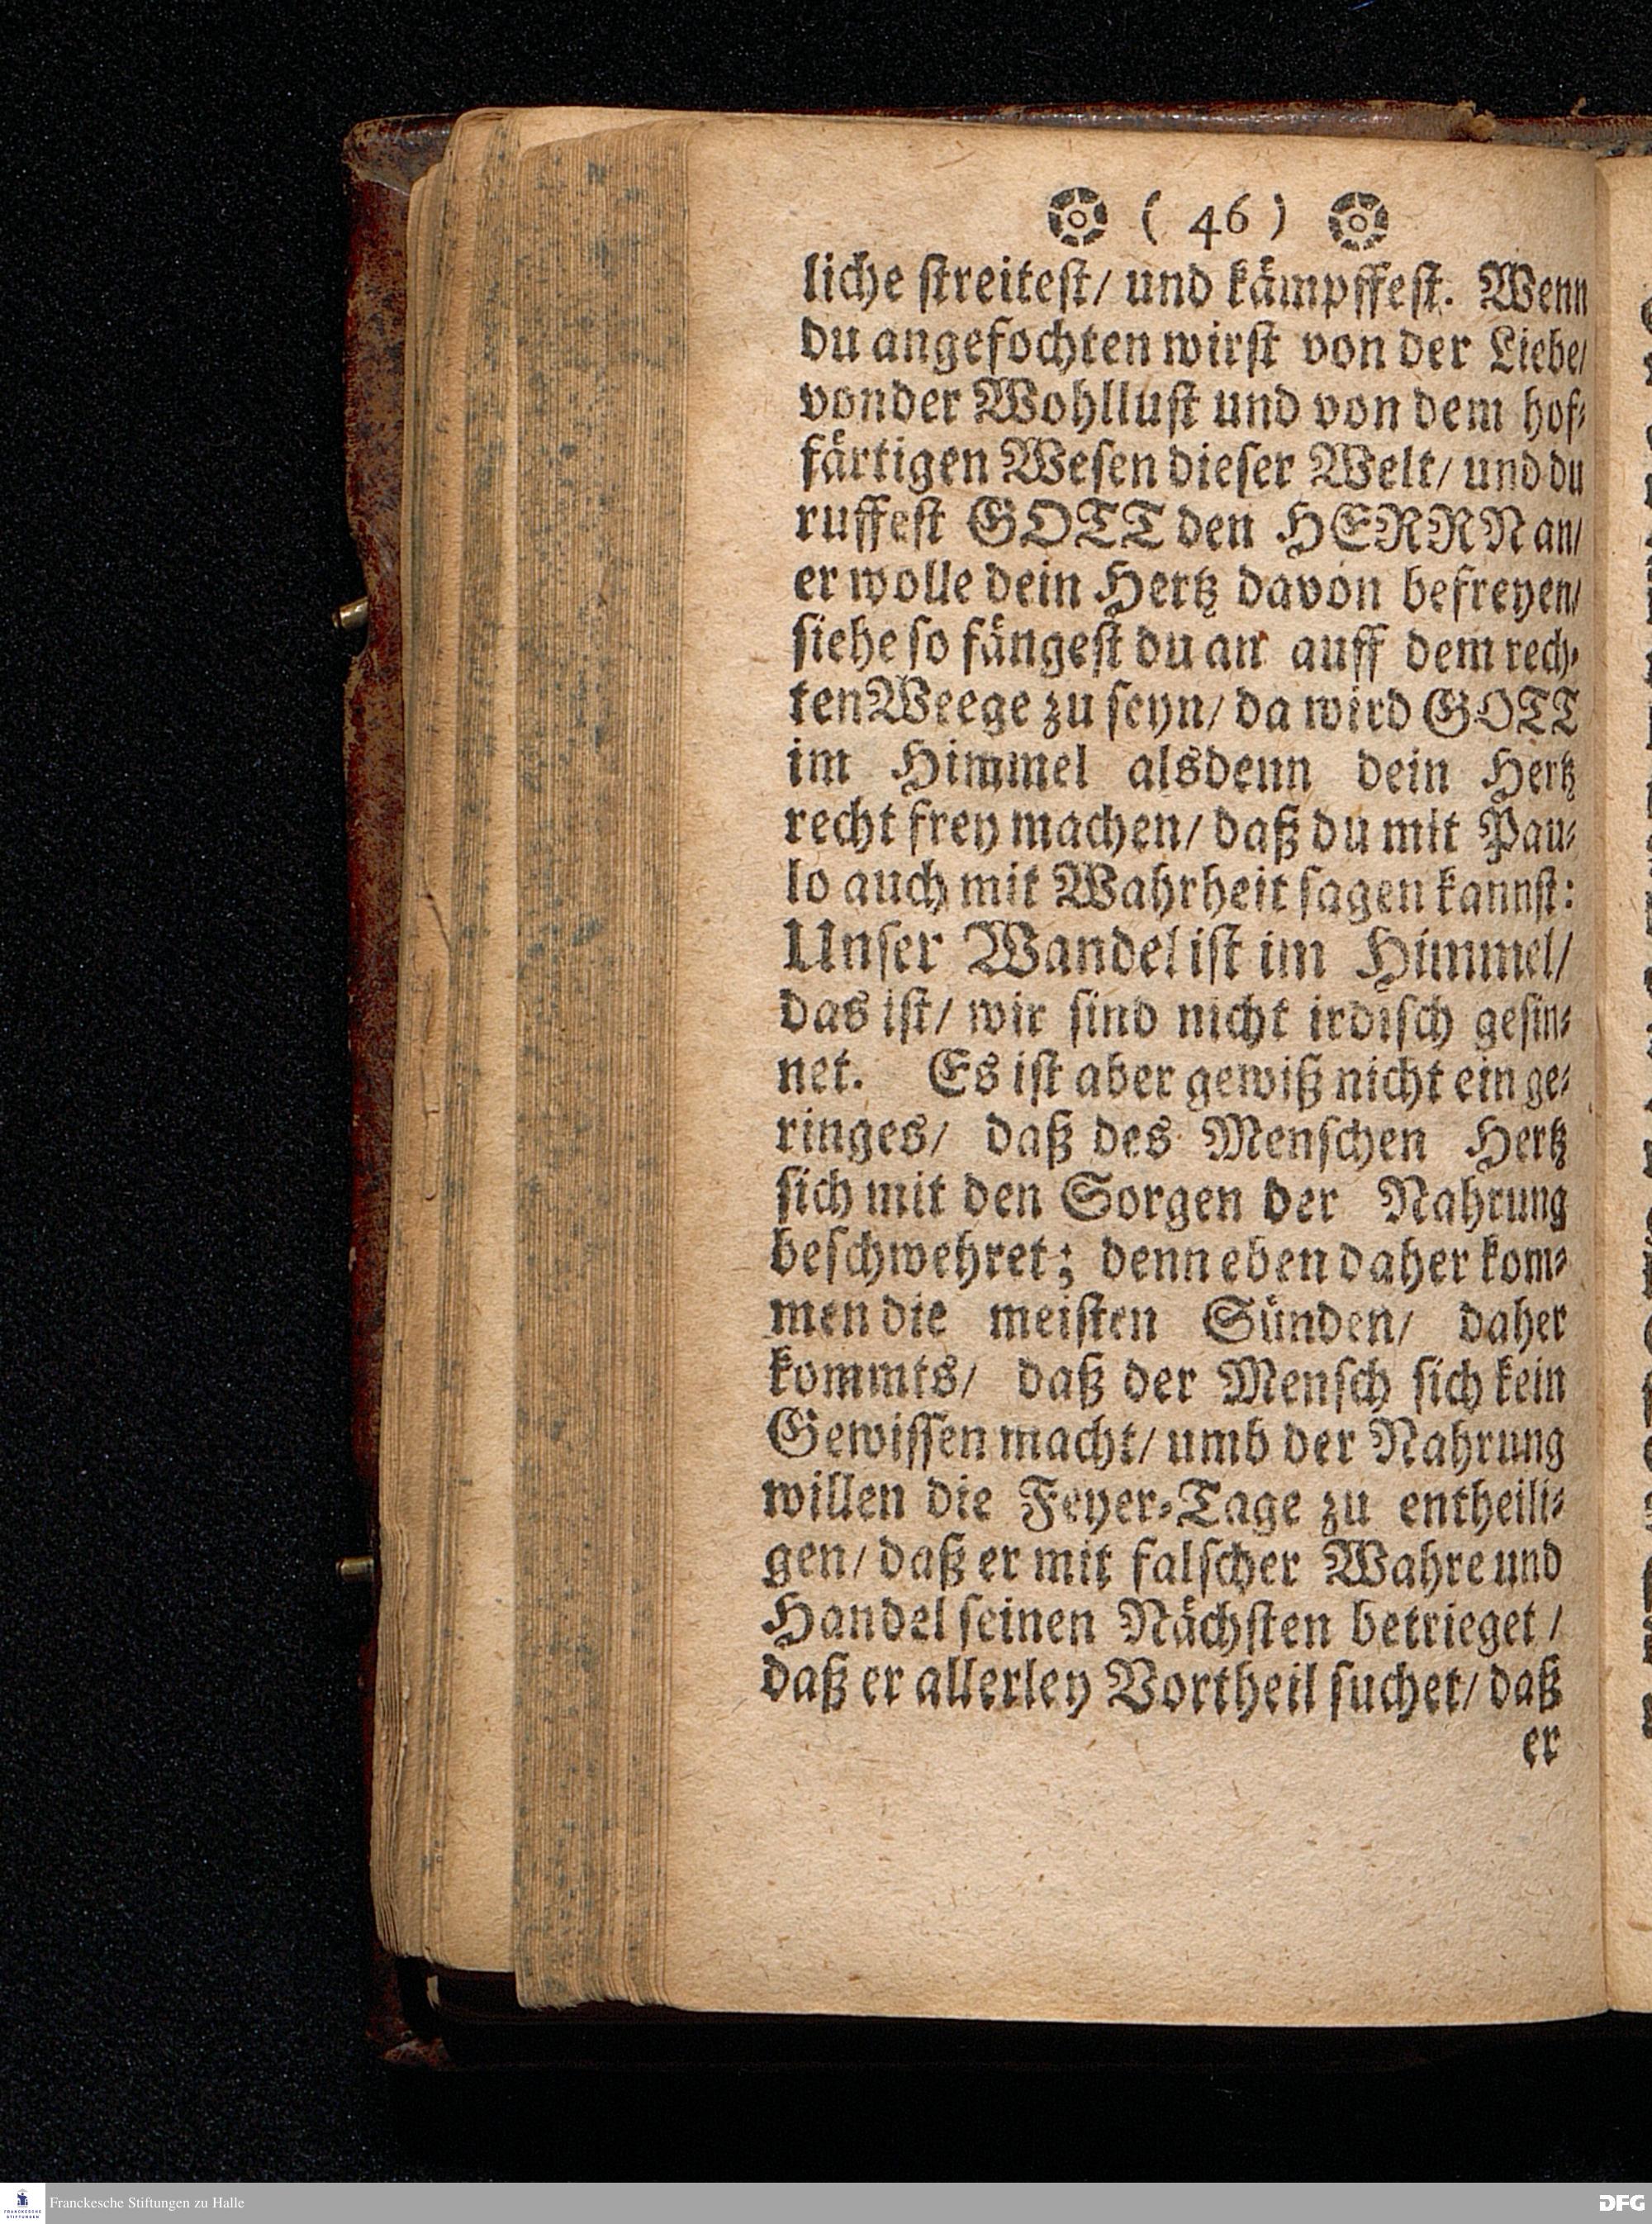 ( 46 )
liche streitest/ und kämpffest. Wenn
du angefochten wirst von der Liebe/
von der Wohllust und von dem hof-
färtigen Wesen dieser Welt/ und du
ruffest GOTT den HERRN an/
er wolle dein Hertz davon befreyen/
siehe so fängest du an auff dem rech-
ten Weege zu seyn/ da wird GOTT
im Himmel alsdenn dein Hertz
recht frey machen/ daß du mit Pau-
lo auch mit Wahrheit sagen kannst:
Unser Wandel ist im Himmel/
das ist/ wir sind nicht irdisch gesin-
net. Es ist aber gewiß nicht ein ge-
ringes/ daß des Menschen Hertz
sich mit den Sorgen der Nahrung
beschwehret; denn eben daher kom-
men die meisten Sünden/ daher
kommts/ daß der Mensch sich kein
Gewissen macht/ umb der Nahrung
willen die Feyer-Tage zu entheili-
gen/ daß er mit falscher Wahre und
Handel seinen Nächsten betrieget/
daß er allerley Vortheil suchet/ daß
er
Franckesche Stiftungen zu Halle
DFG